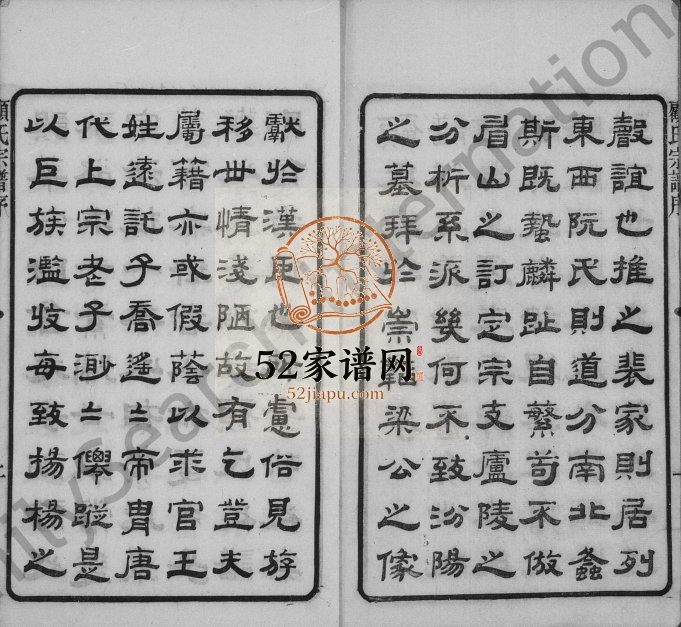 顧氏宗譜序
殽誼也推之裴家則居列
東西阮氏則道分南北螽
斯既蟄麟趾自繁苟不倣
眉山之訂定宗支廬陵之
分析系派幾何不致汾陽
之墓拜於崇韜梁公之像
獻於漢臣也慮俗見游
移世情淺陋故有乞登夫
屬籍亦或假蔭以求官王
姓遠託子喬遙遙帝胄唐
代上宗老子渺渺僊蹤是
以巨族濫收每致揚楊之
顧氏宗譜序
52家谱网
52jiapu.com